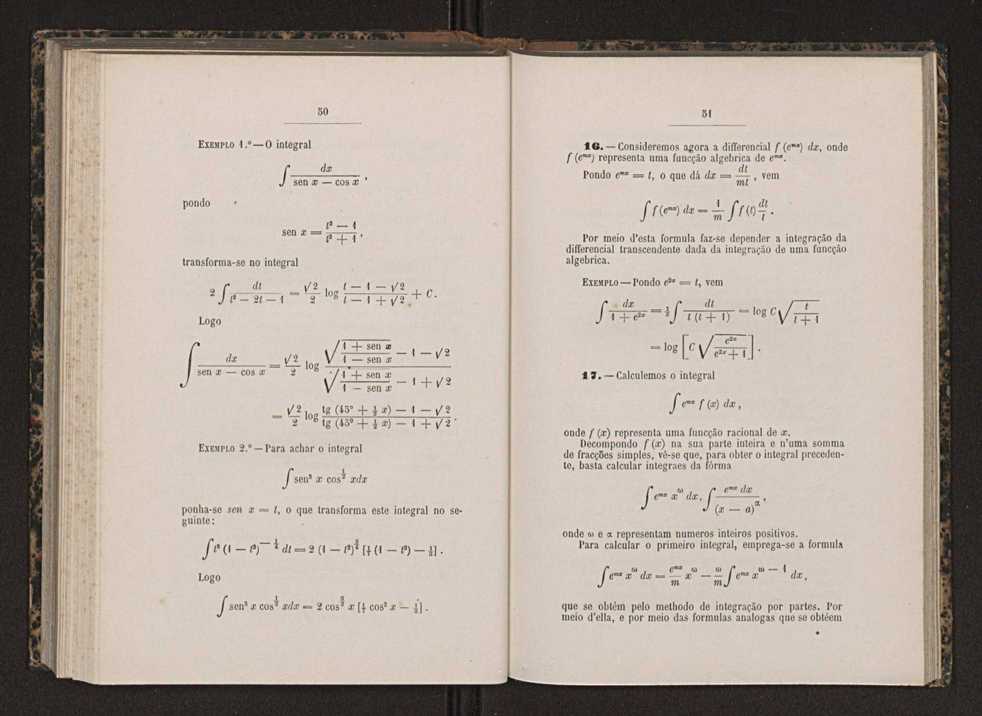 50
EXEMPLO 1.º — O integral
∫ dx / (sen x — cos x) ,
pondo
sen x = (t² — 1) / (t² + 1) ,
transforma-se no integral
2 ∫ dt / (t² — 2t — 1) = (√2 / 2) log (t — 1 — √2) / (t — 1 + √2) + C.
Logo
∫ dx / (sen x — cos x) = (√2 / 2) log (√((1 + sen x) / (1 — sen x)) — 1 — √2) / (√((1 + sen x) / (1 — sen x)) — 1 + √2)
= (√2 / 2) log (tg (45° + ½ x) — 1 — √2) / (tg (45° + ½ x) — 1 + √2) .
EXEMPLO 2.º — Para achar o integral
∫ sen³ x cos^½ xdx
ponha-se sen x = t, o que transforma este integral no se-
guinte:
∫ t³ (1 — t²)^(— ¼) dt = 2 (1 — t²)^¾ [⅐ (1 — t²) — ⅓] .
Logo
∫ sen³ x cos^½ xdx = 2 cos^(3/2) x [⅐ cos² x — ⅓] .
51
16. — Consideremos agora a differencial f (e^mx) dx, onde
f (e^mx) representa uma funcção algebrica de e^mx.
Pondo e^mx = t, o que dá dx = dt / mt , vem
∫ f (e^mx) dx = (1 / m) ∫ f (t) dt / t .
Por meio d'esta formula faz-se depender a integração da
differencial transcendente dada da integração de uma funcção
algebrica.
EXEMPLO — Pondo e^2x = t, vem
∫ dx / (1 + e^2x) = ½ ∫ dt / (t (t + 1)) = log C √(t / (t + 1))
= log [C √(e^2x / (e^2x + 1))] .
17. — Calculemos o integral
∫ e^mx f (x) dx ,
onde f (x) representa uma funcção racional de x.
Decompondo f (x) na sua parte inteira e n'uma somma
de fracções simples, vê-se que, para obter o integral preceden-
te, basta calcular integraes da fórma
∫ e^mx x^ω dx, ∫ e^mx dx / (x — a)^α ,
onde ω e α representam numeros inteiros positivos.
Para calcular o primeiro integral, emprega-se a formula
∫ e^mx x^ω dx = (e^mx / m) x^ω — (ω / m) ∫ e^mx x^(ω — 1) dx,
que se obtém pelo methodo de integração por partes. Por
meio d'ella, e por meio das formulas analogas que se obtéem
*